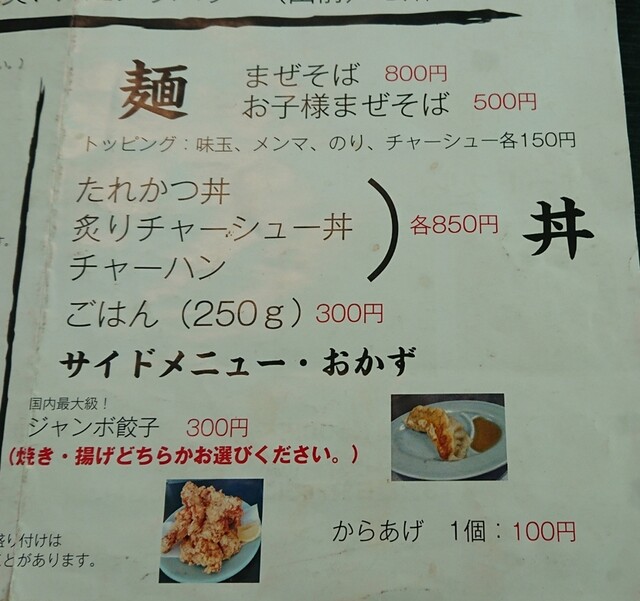 麺
まぜそば 800円
お子様まぜそば 500円
トッピング：味玉、メンマ、のり、チャーシュー各150円
たれかつ丼
炙りチャーシュー丼
チャーハン
各850円
丼
ごはん（250ｇ）300円
サイドメニュー・おかず
国内最大級！
ジャンボ餃子 300円
（焼き・揚げどちらかお選びください。）
からあげ 1個：100円
り付けは
とがあります。